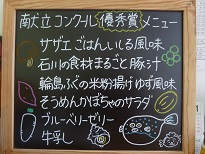 献立コンクール優秀賞メニュー
サザエごはんいしる風味
石川の食材まるごと豚汁
輪島ふぐの米粉揚げゆず風味
そうめんかぼちゃのサラダ
ブルーベリーゼリー
牛乳